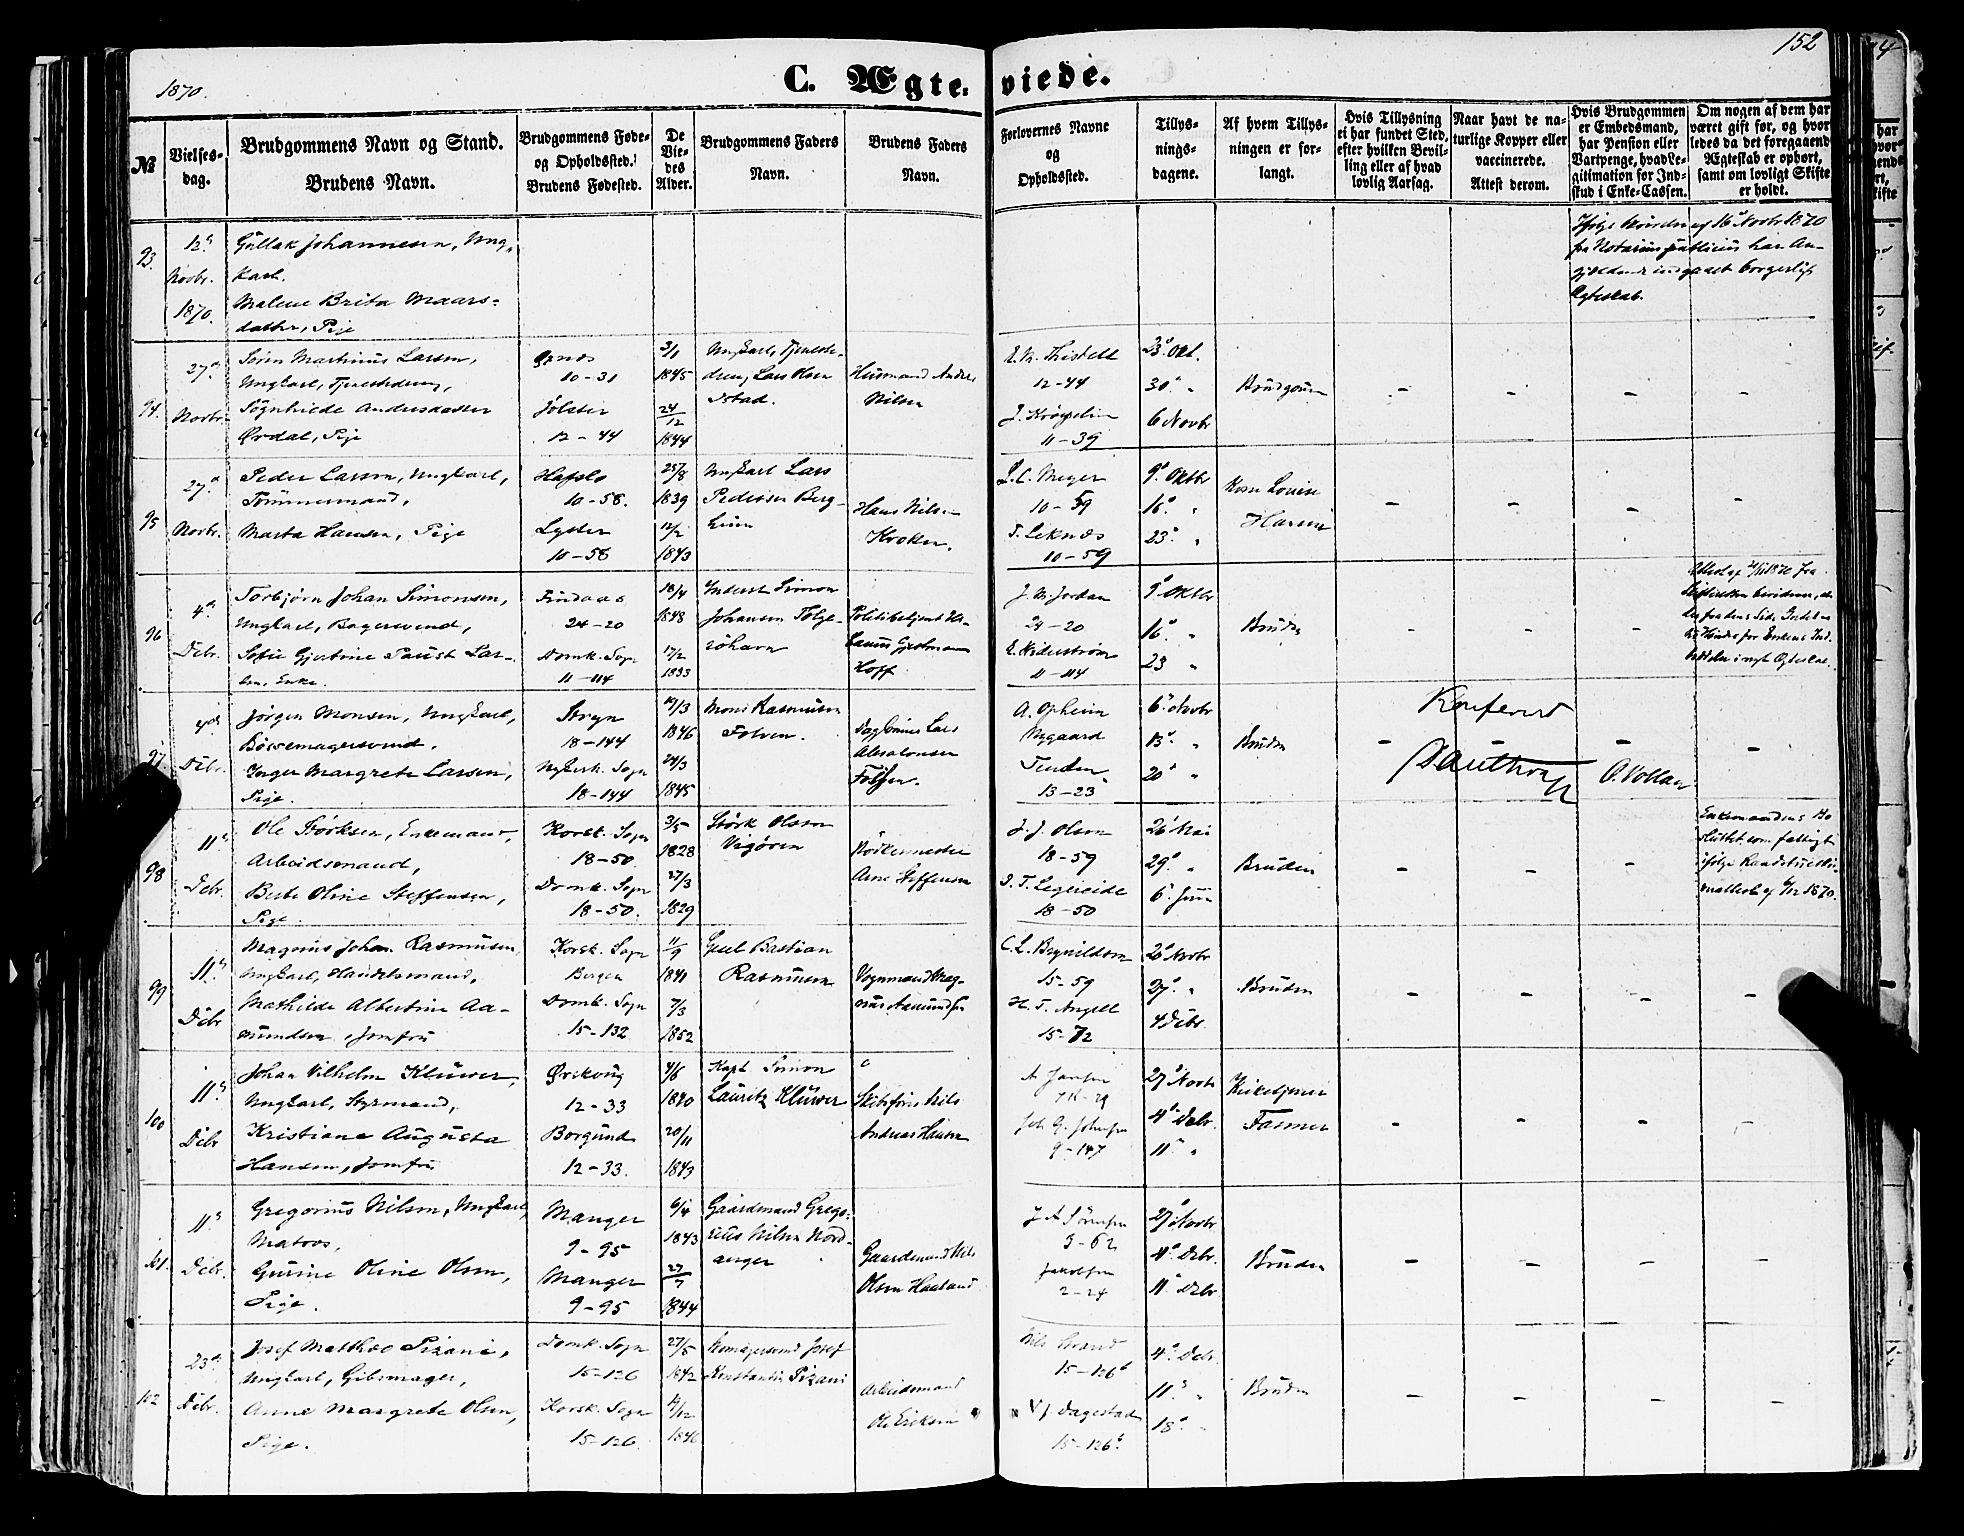 1870.
C. Ægteviede.
152
№
Vielsesdag.
Brudgommens Navn og Stand.
Brudens Navn.
Brudgommens Føde- og Opholdssted.
Brudens Fødested.
De Viedes Alder.
Brudgommens Faders Navn.
Brudens Faders Navn.
Forlovernes Navne og Opholdssted.
Tillysningsdagene.
Af hvem Tillysningen er forlangt.
Hvis Tillysning ei har fundet Sted, efter hvilken Bevilling eller af hvad lovlig Aarsag.
Naar havt de naturlige Kopper eller vaccinerede. Attest derom.
Hvis Brudgommen er Embedsmand, har Pension eller Vartpenge, hvad Legitimation for Indskud i Enke-Cassen.
Om nogen af dem har været gift før, og hvorledes da det foregaaende Ægteskab er ophørt, samt om lovligt Skifte er holdt.
93.
12'
Novbr.
1870.
Gullak Johannesen, Ungkarl.
Malene Brita Maarsdatter, Pige
af 16' Novbr 1870
fra Notarius publicus har
indgaaet borgerligt
Ægteskab.
94.
27'
Novbr.
Søren Martinius Larsen,
Ungkarl, Tjenestedreng,
Søgnhilde Andersdatter
Ørdal, Pige
10-31
Jølster
12-44
3/1
1845
24/12
1844
Ungkarl, Tjenestedreng Lars Olsen
Husmand Anders
Nilsen
12-44
11-39
23' Okt.
30' "
6 Novbr
Brudgom
95
27'
Novbr.
Peder Larsen, Ungkarl,
Tømmermand,
Marta Hansen, Pige
Hafslo
10-58.
Lyster
10-58
25/8
1839
12/2
1843
Ungkarl Lars
Pedersen Bergheim
Hans Nilsen
Kroken.
J. C. Meyer
10-59
T. Leknes
10-59
9' Oktbr
16' "
23' "
Louise
Hansen
96
4'
Debr.
Torbjørn Johan Simonsen,
Ungkarl, Bagersvend,
Sofie Gjertine Paust Larsen, Enke.
Findaas
24-20
Domk. Sogn
11-114
18/4
1848
17/2
1833
Inderst Simon
Johansen Tolgerøhavn
Politibetjent
Hoff
J. M. Jordan
24-20
11-114
9' Oktbr
16' "
23 "
Bruden
97.
4de
Debr.
Jørgen Monsen, Ungkarl,
Bøssemagersvend.
Inger Margrete Larsen,
Pige.
Stryn
18-144
Nykirk. Sogn
18-144
19/3
1846
24/3
1845
Mons Rasmusen
Folven.
Lars
Absalonsen
A. Opheim
Nygaard
13-23
6' Novbr
13' "
20' "
Bruden
Konfererd
O. Vollan
98
11'
Debr.
Ole Størksen, Enkemand,
Arbeidsmand,
Berte Oline Steffensen,
Pige.
Korsk. Sogn
18-50
Domk. Sogn
18-50.
3/5
1828
27/3
1829
Størk Olsen
Vigøren
Arne Steffensen
J. J. Olsen
18-59
18-50
26' Mai
29' "
6' Juni
Bruden
Enkemandens Bo
sluttet som fattigt
ifølge
99
11'
Debr
Magnus Johan Rasmusen,
Ungkarl, Handelsmand,
Mathilde Albertine Aamundsen, Jomfru
Korsk. Sogn
Bergen
Domk. Sogn
15-132
11/9
1841
7/3
1852
Bastian
Rasmusen
Vognmand Magnus Aamundsen
15-59
H. T. Angell
15-72
20' Novbr
27' "
4 Debr.
Bruden
100
11'
Debr
Johan Vilhelm Klüwer,
Ungkarl, Styrmand,
Kristiane Augusta
Hansen, Jomfru
Ørskoug
12-33
Borgund
12-33.
4/6
1840
20/11
1843
Kapt. Simon
Lauritz Klüwer
Skibsfører Nils
Andreas Hansen
9-147
27' Novbr
4' Debr.
11' "
Kirketjener
Fasmer
101.
11'
Debr.
Gregorius Nilsen, Ungkarl,
Matros,
Gurine Oline Olsen,
Pige.
Manger
9-95
Manger
9-95
6/4
1843
27/7
1844
Gaardmand Gregorius Nilsen Nordanger
Gaardmand Nils
Olsen Haaland
3-62
2-24
27' Novbr
4' Debr.
11' Debr.
Bruden
102
23'
Debr.
Josef Matthæo Pizani,
Ungkarl, Gibsmager,
Anne Margrete Olsen,
Pige.
Domk. Sogn
15-126
Korsk. Sogn
15-126
27/5
1842
1846
Josef
Konstantin Pizani
Arbeidsmand
Ole Eriksen
Nils Strand
15-126
15-126
4' Debr.
11' "
18' "
Bruden